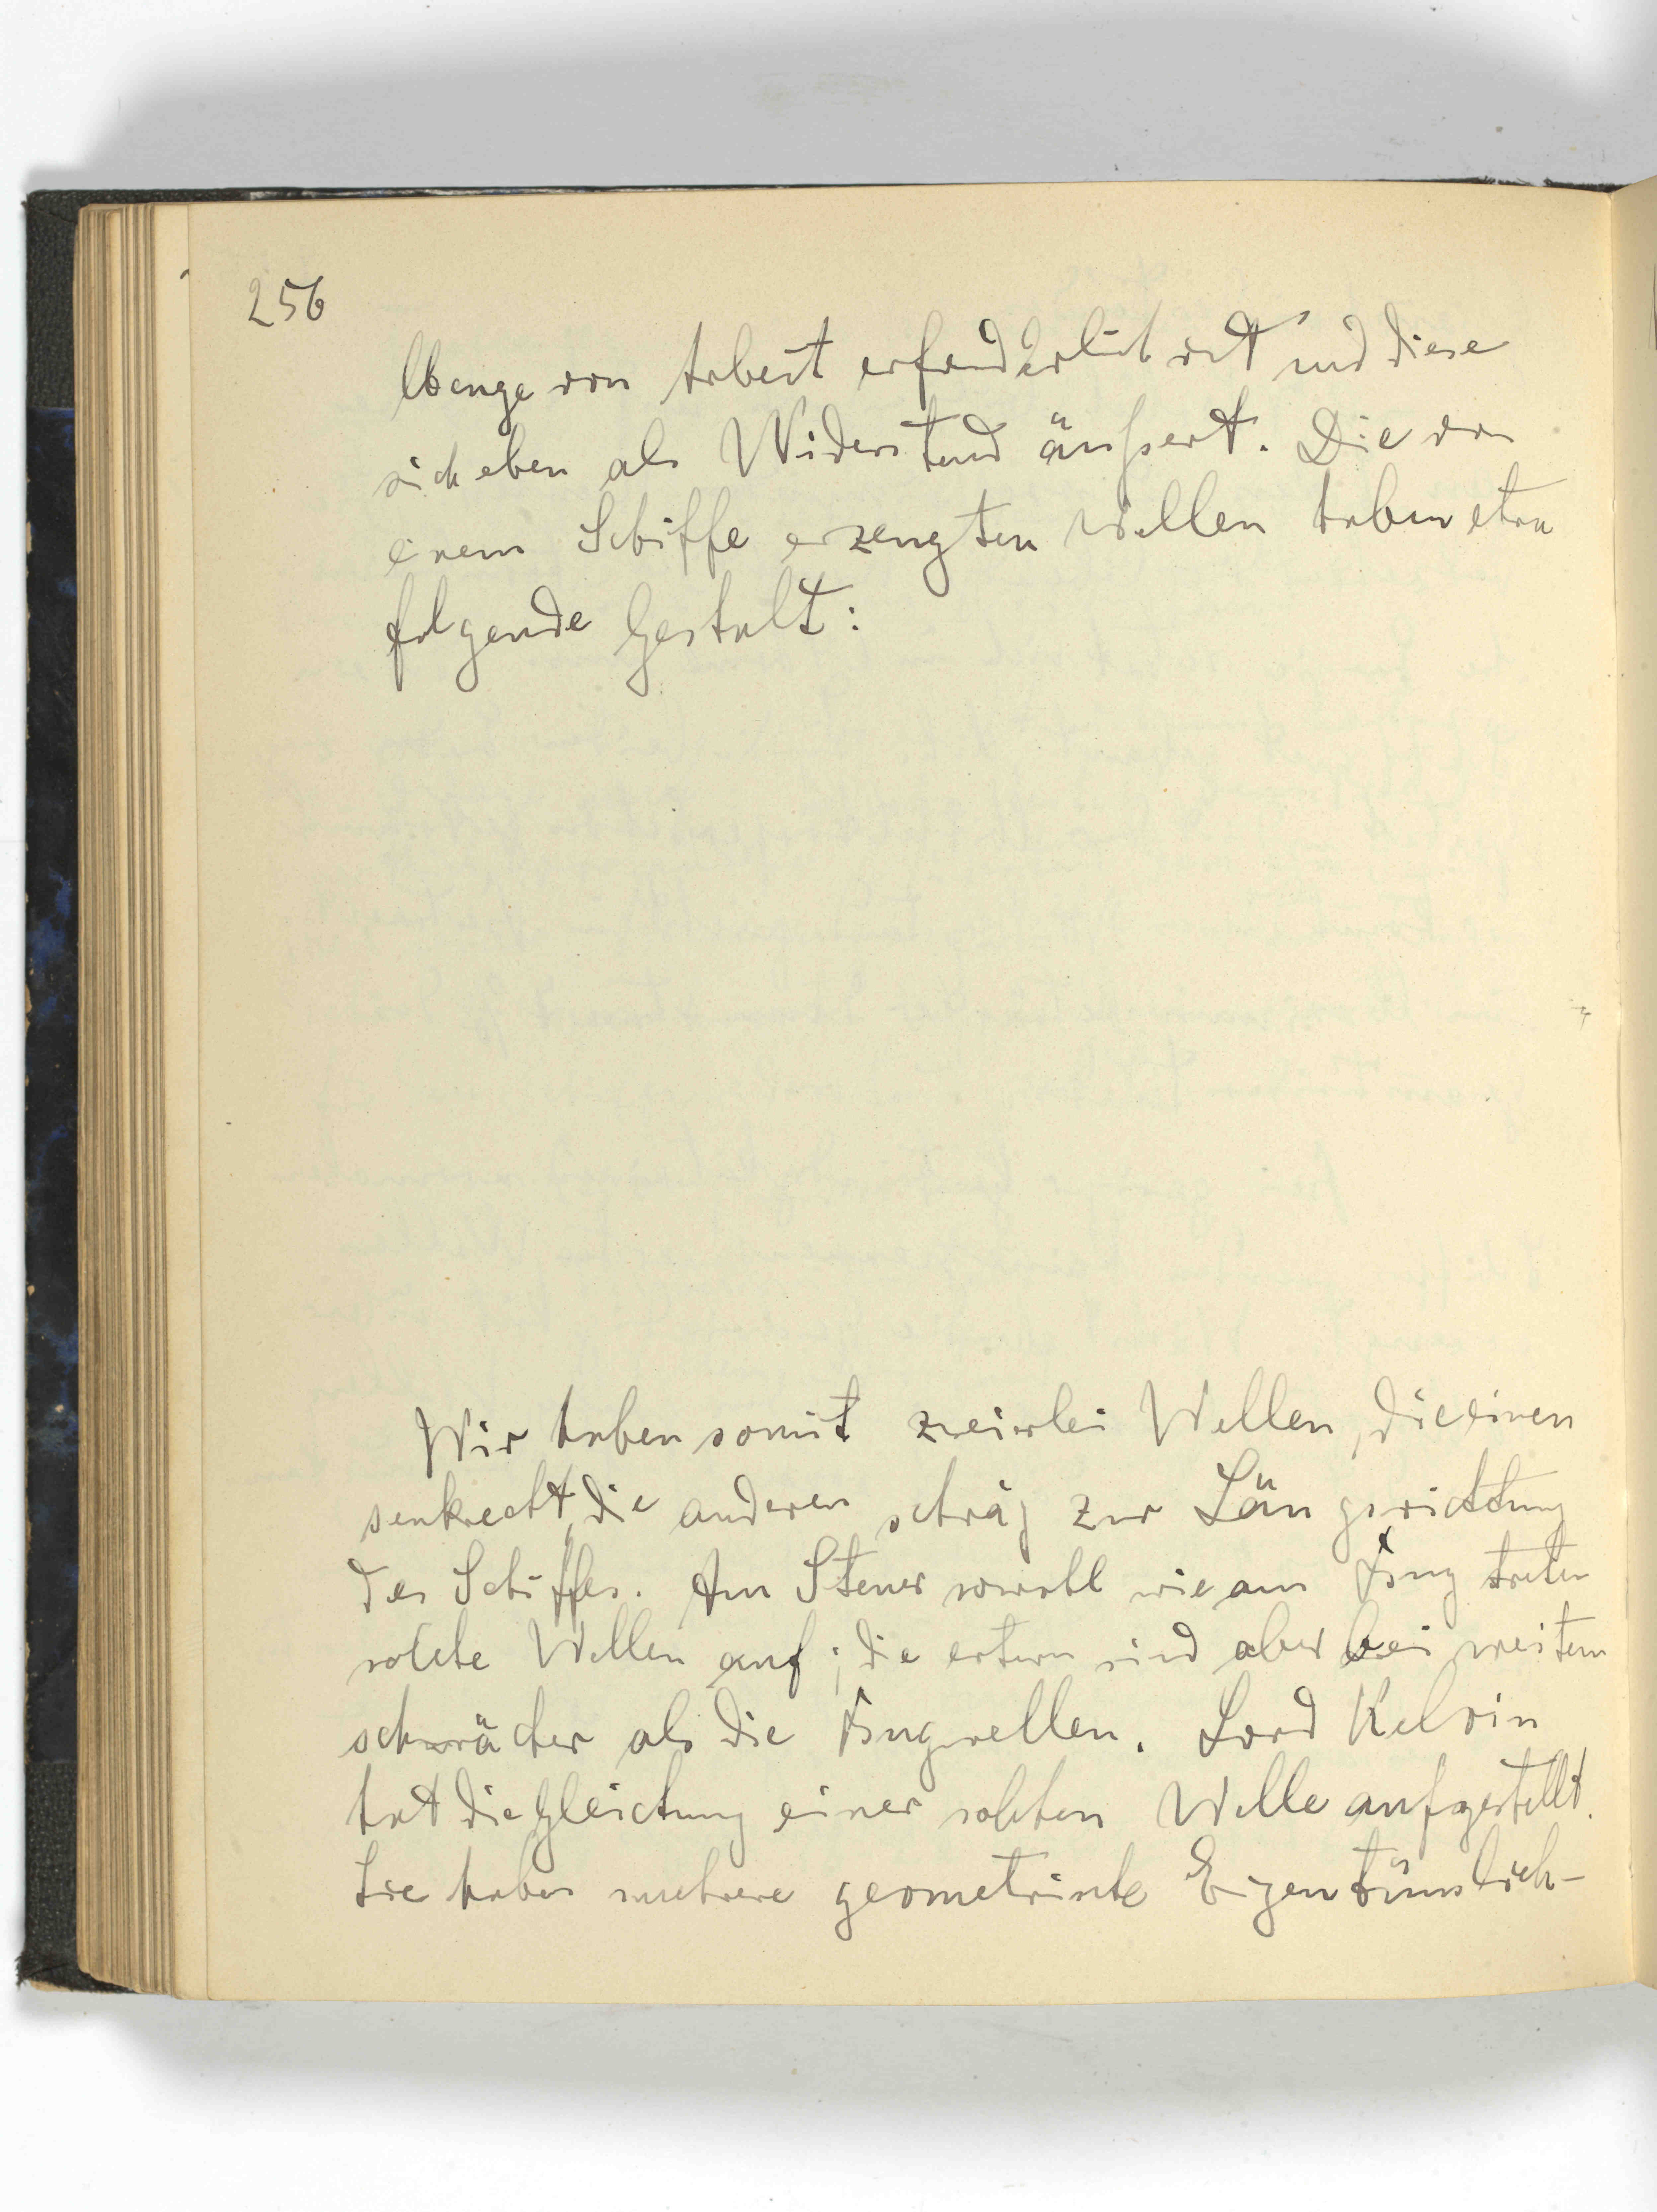 256
Menge von Arbeit erforderlich ist und diese
sich eben als Widerstand äußert. Die von
einem Schiffe erzeugten Wellen haben etwa
folgende Gestalt:
Wir haben somit zweierlei Wellen, die einen
senkrecht, die anderen schräg zur Längsrichtung
des Schiffes. Am Steuer sowohl wie am Bug treten
solche Wellen auf; die ertern sind aber bei weitem
schwächer als die Bugwellen. Lord Kelvin
hat die Gleichung einer solchen Welle aufgestellt.
Sie haben mehrere geometrische Eigentümlich-